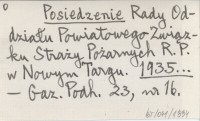 Posiedzenie Rady Od-
działu Powiatowego Związ-
ku Straży Pożarnych R.P.
w Nowym Targu. 1935...
— Gaz. Podh. 23, nr 16.